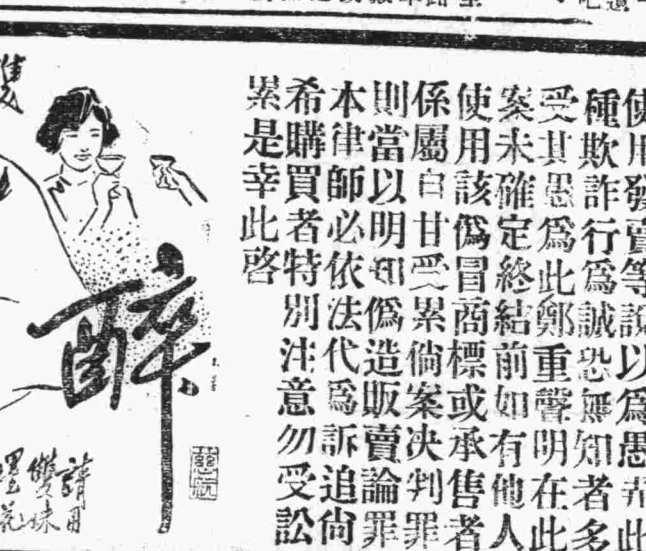 使用發賣等說以爲愚弄此
種欺詐行爲誠恐無知者多
受其愚爲此鄭重聲明在此
案未確定終結前如有他人
使用該僞冒商標或承售者
係屬自甘受累倘案决判罪
則當以明知僞造販賣論罪
本律師必依法代爲訴追尙
希購買者特別注意勿受訟
累是幸此啓
醉
請用
雙妹